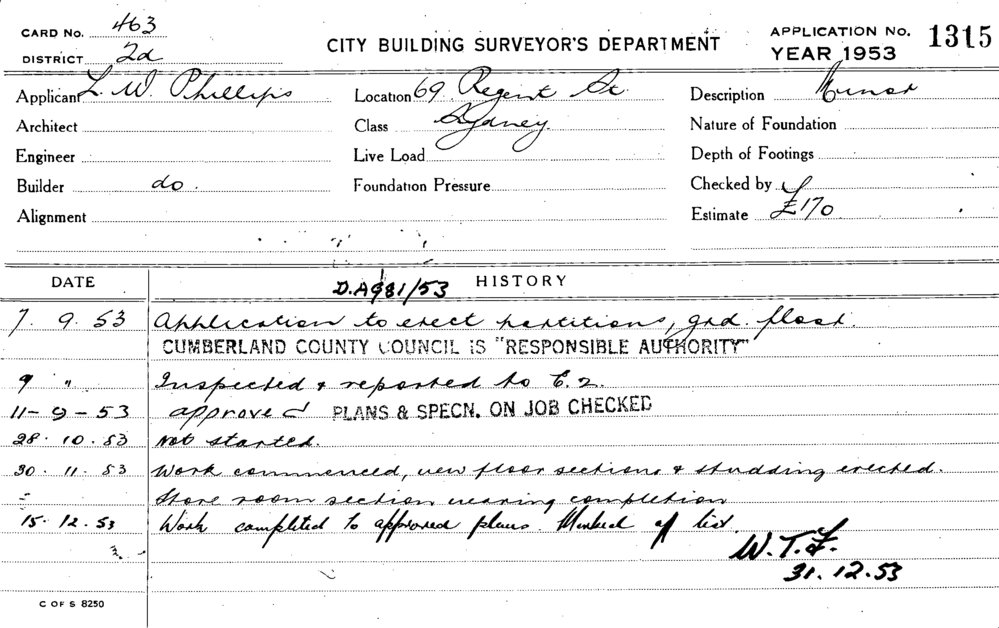 CARD No. 463
DISTRICT 2d
CITY BUILDING SURVEYOR'S DEPARTMENT
APPLICATION No. 1315
YEAR 1953
Applicant L. W. Phillips
Location 69 Regent St.
Description Minor
Architect
Class Sydney.
Nature of Foundation
Engineer
Live Load
Depth of Footings
Builder do.
Foundation Pressure
Checked by
Alignment
Estimate £170
DATE HISTORY
D.A 981/53
7. 9. 53 Application to erect partitions, grd. floor.
CUMBERLAND COUNTY COUNCIL IS "RESPONSIBLE AUTHORITY"
9 " Inspected & reported to E.2.
11-9-53 approved PLANS & SPECN. ON JOB CHECKED
28. 10. 53 Not started.
30. 11. 53 Work commenced, new floor sections & studding erected.
Store room section nearing completion
15. 12. 53 Work completed to approved plans. Marked off list.
W.T.F.
31. 12. 53
C OF S 8250